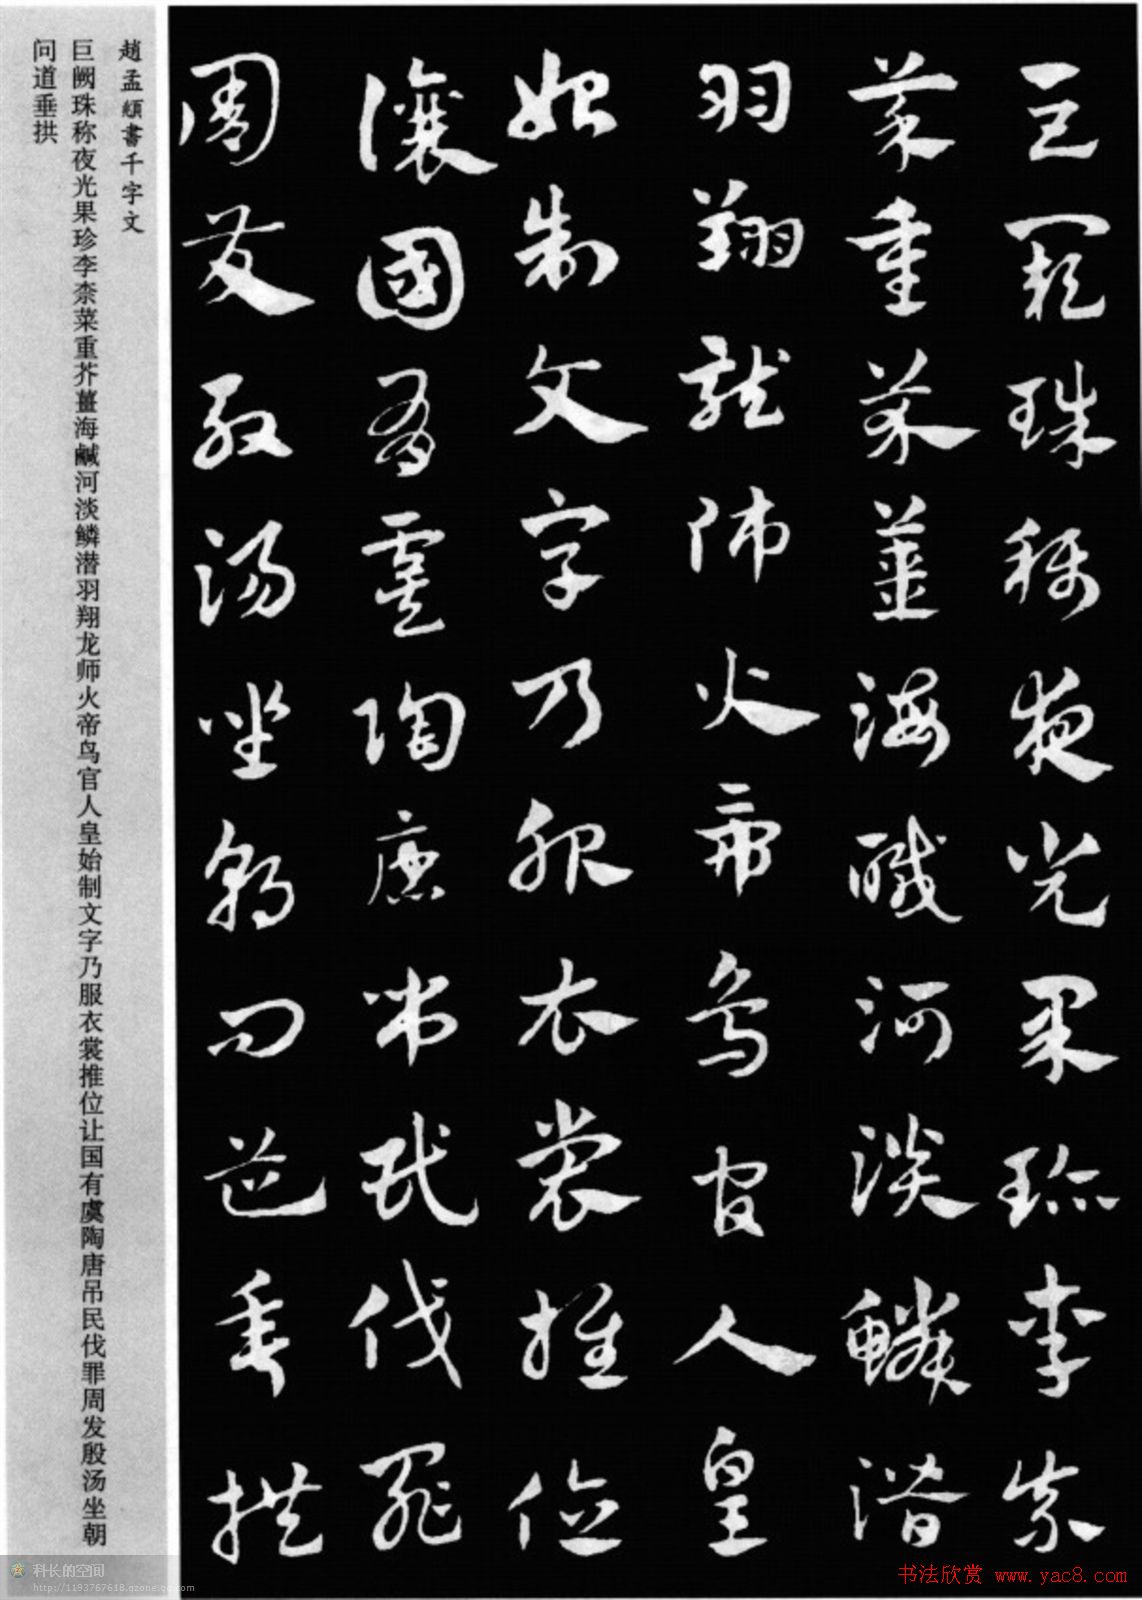 巨闕珠稱夜光果珍李柰
菜重芥薑海鹹河淡鱗潛
羽翔龍師火帝鳥官人皇
始制文字乃服衣裳推位
讓國有虞陶唐弔民伐罪
周發殷湯坐朝問道垂拱
趙孟頫書千字文
巨阙珠称夜光果珍李柰菜重芥薑海鹹河淡鳞潜羽翔龙师火帝鸟官人皇始制文字乃服衣裳推位让国有虞陶唐吊民伐罪周发殷汤坐朝
问道垂拱
科长的空间
http://1193767618.qzone.qq.com
书法欣赏 www.yac8.com